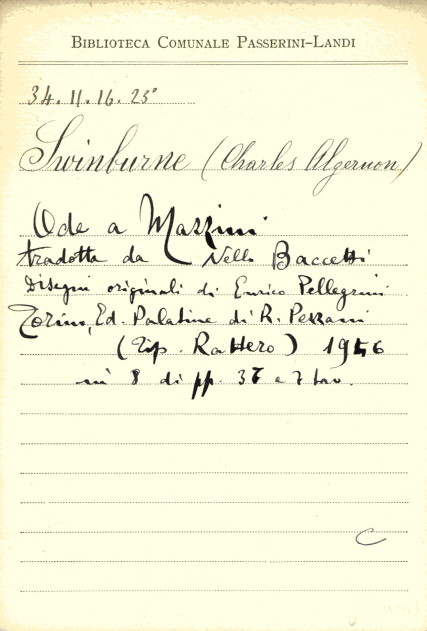 BIBLIOTECA COMUNALE PASSERINI-LANDI
34.11.16.23°
Swinburne (Charles Algernon)
Ode a Mazzini
tradotta da Nello Baccetti
Disegni originali di Enrico Pellegrini
Torino, Ed. Palatine di R. Pezzani
(Tip. Rattero) 1946
in 8 di pp. e 7 tav.
C